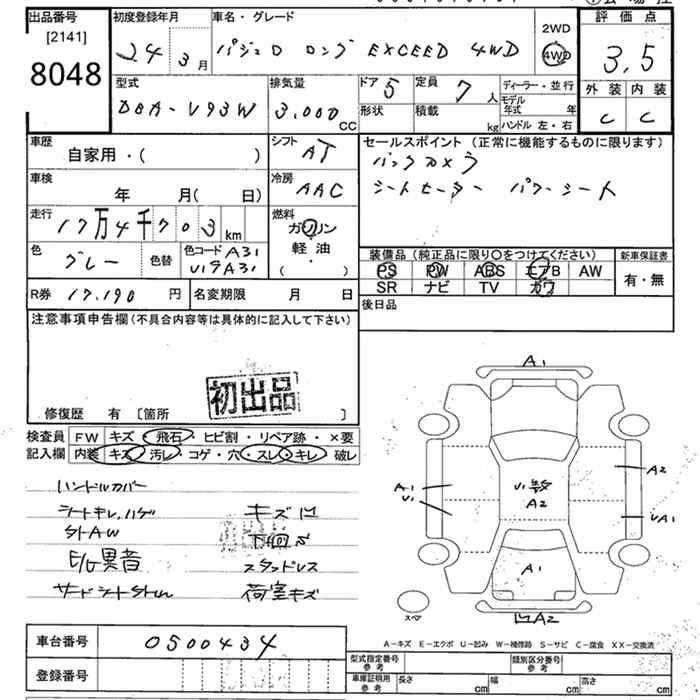 出品番号 初度登録年月 車名・グレード 2WD 評価点
[2141] 24年 3月 パジェロ ロング EXCEED 4WD 4WD 3.5
8048
型式 排気量 ドア 5 定員 7人 ディーラー・並行 外装 内装
DBA-V93W 3,000cc 形状 積載 kg モデル年式 年 C C
ハンドル 左・右
車歴 シフト セールスポイント (正常に機能するものに限ります)
自家用・( ) AT バックカメラ
車検 冷房 シートヒーター パワーシート
年 月( 日) AAC
走行 燃料
17万4千703km ガソリン
軽・油
色 色替 色コード A31 ( ) 装備品 (純正品に限り〇をつけてください) 新車保証書
グレー U19A31 PS PW ABS エアB AW 有・無
R券 17,190円 名変期限 月 日 SR ナビ TV カワ
後日品
注意事項申告欄(不具合内容等は具体的に記入して下さい)
初出品
修復歴 有 [箇所 ]
検査員 FW キズ・飛石・ヒビ割・リペア跡・×要
記入欄 内装 キズ・汚レ・コゲ・穴・スレ・キレ・破レ
ハンドルカバー
シートキレ,ハゲ キズ凹
StAW 下回S
E/G異音 スタッドレス
サードシートStun 荷室キズ
A1
A1 U1 A2
U1 A2 UA1
A1
スペア 凹A2
A-キズ E-エクボ U-凹み W-補修跡 S-サビ C-腐食 XX-交換済
車台番号 0500434
登録番号
型式指定番号 参考 類別区分番号 参考
車庫証明用 参考 長さ cm 幅 cm 高さ cm